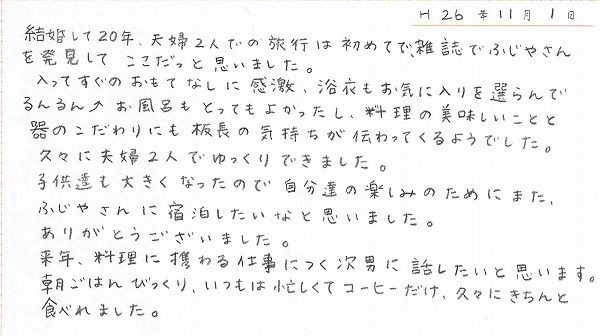 H26年11月1日
結婚して20年、夫婦2人での旅行は初めてで、雑誌でふじやさん
を発見して ここだっと思いました。
入ってすぐのおもてなしに感激、浴衣もお気に入りを選らんで
るんるん↗お風呂もとってもよかったし、料理の美味しいことと
器のこだわりにも板長の気持ちが伝わってくるようでした。
久々に夫婦2人でゆっくりできました。
子供達も大きくなったので自分達の楽しみのためにまた、
ふじやさんに宿泊したいなと思いました。
ありがとうございました。
来年、料理に携わる仕事につく次男に話したいと思います。
朝ごはんびっくり、いつもは忙しくてコーヒーだけ、久々にきちんと
食べれました。